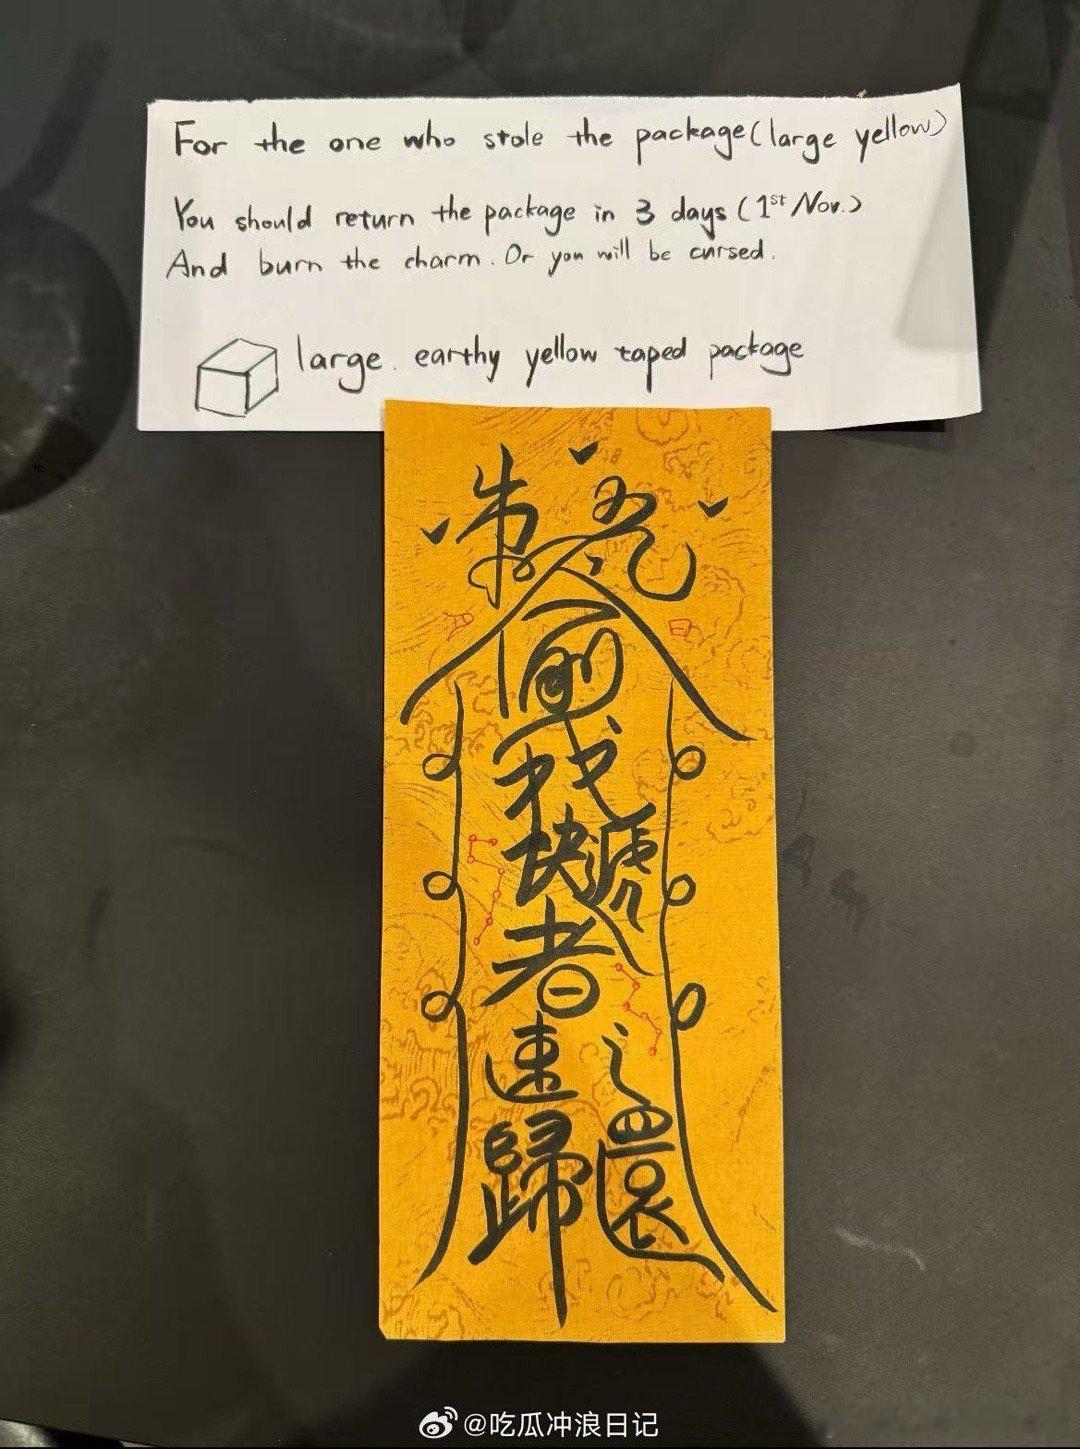 For the one who stole the package (large yellow)
You should return the package in 3 days (1st Nov.)
And burn the charm. Or you will be cursed.
large. earthy yellow taped package
偷
我
快遞
者
速
歸還
@吃瓜冲浪日记